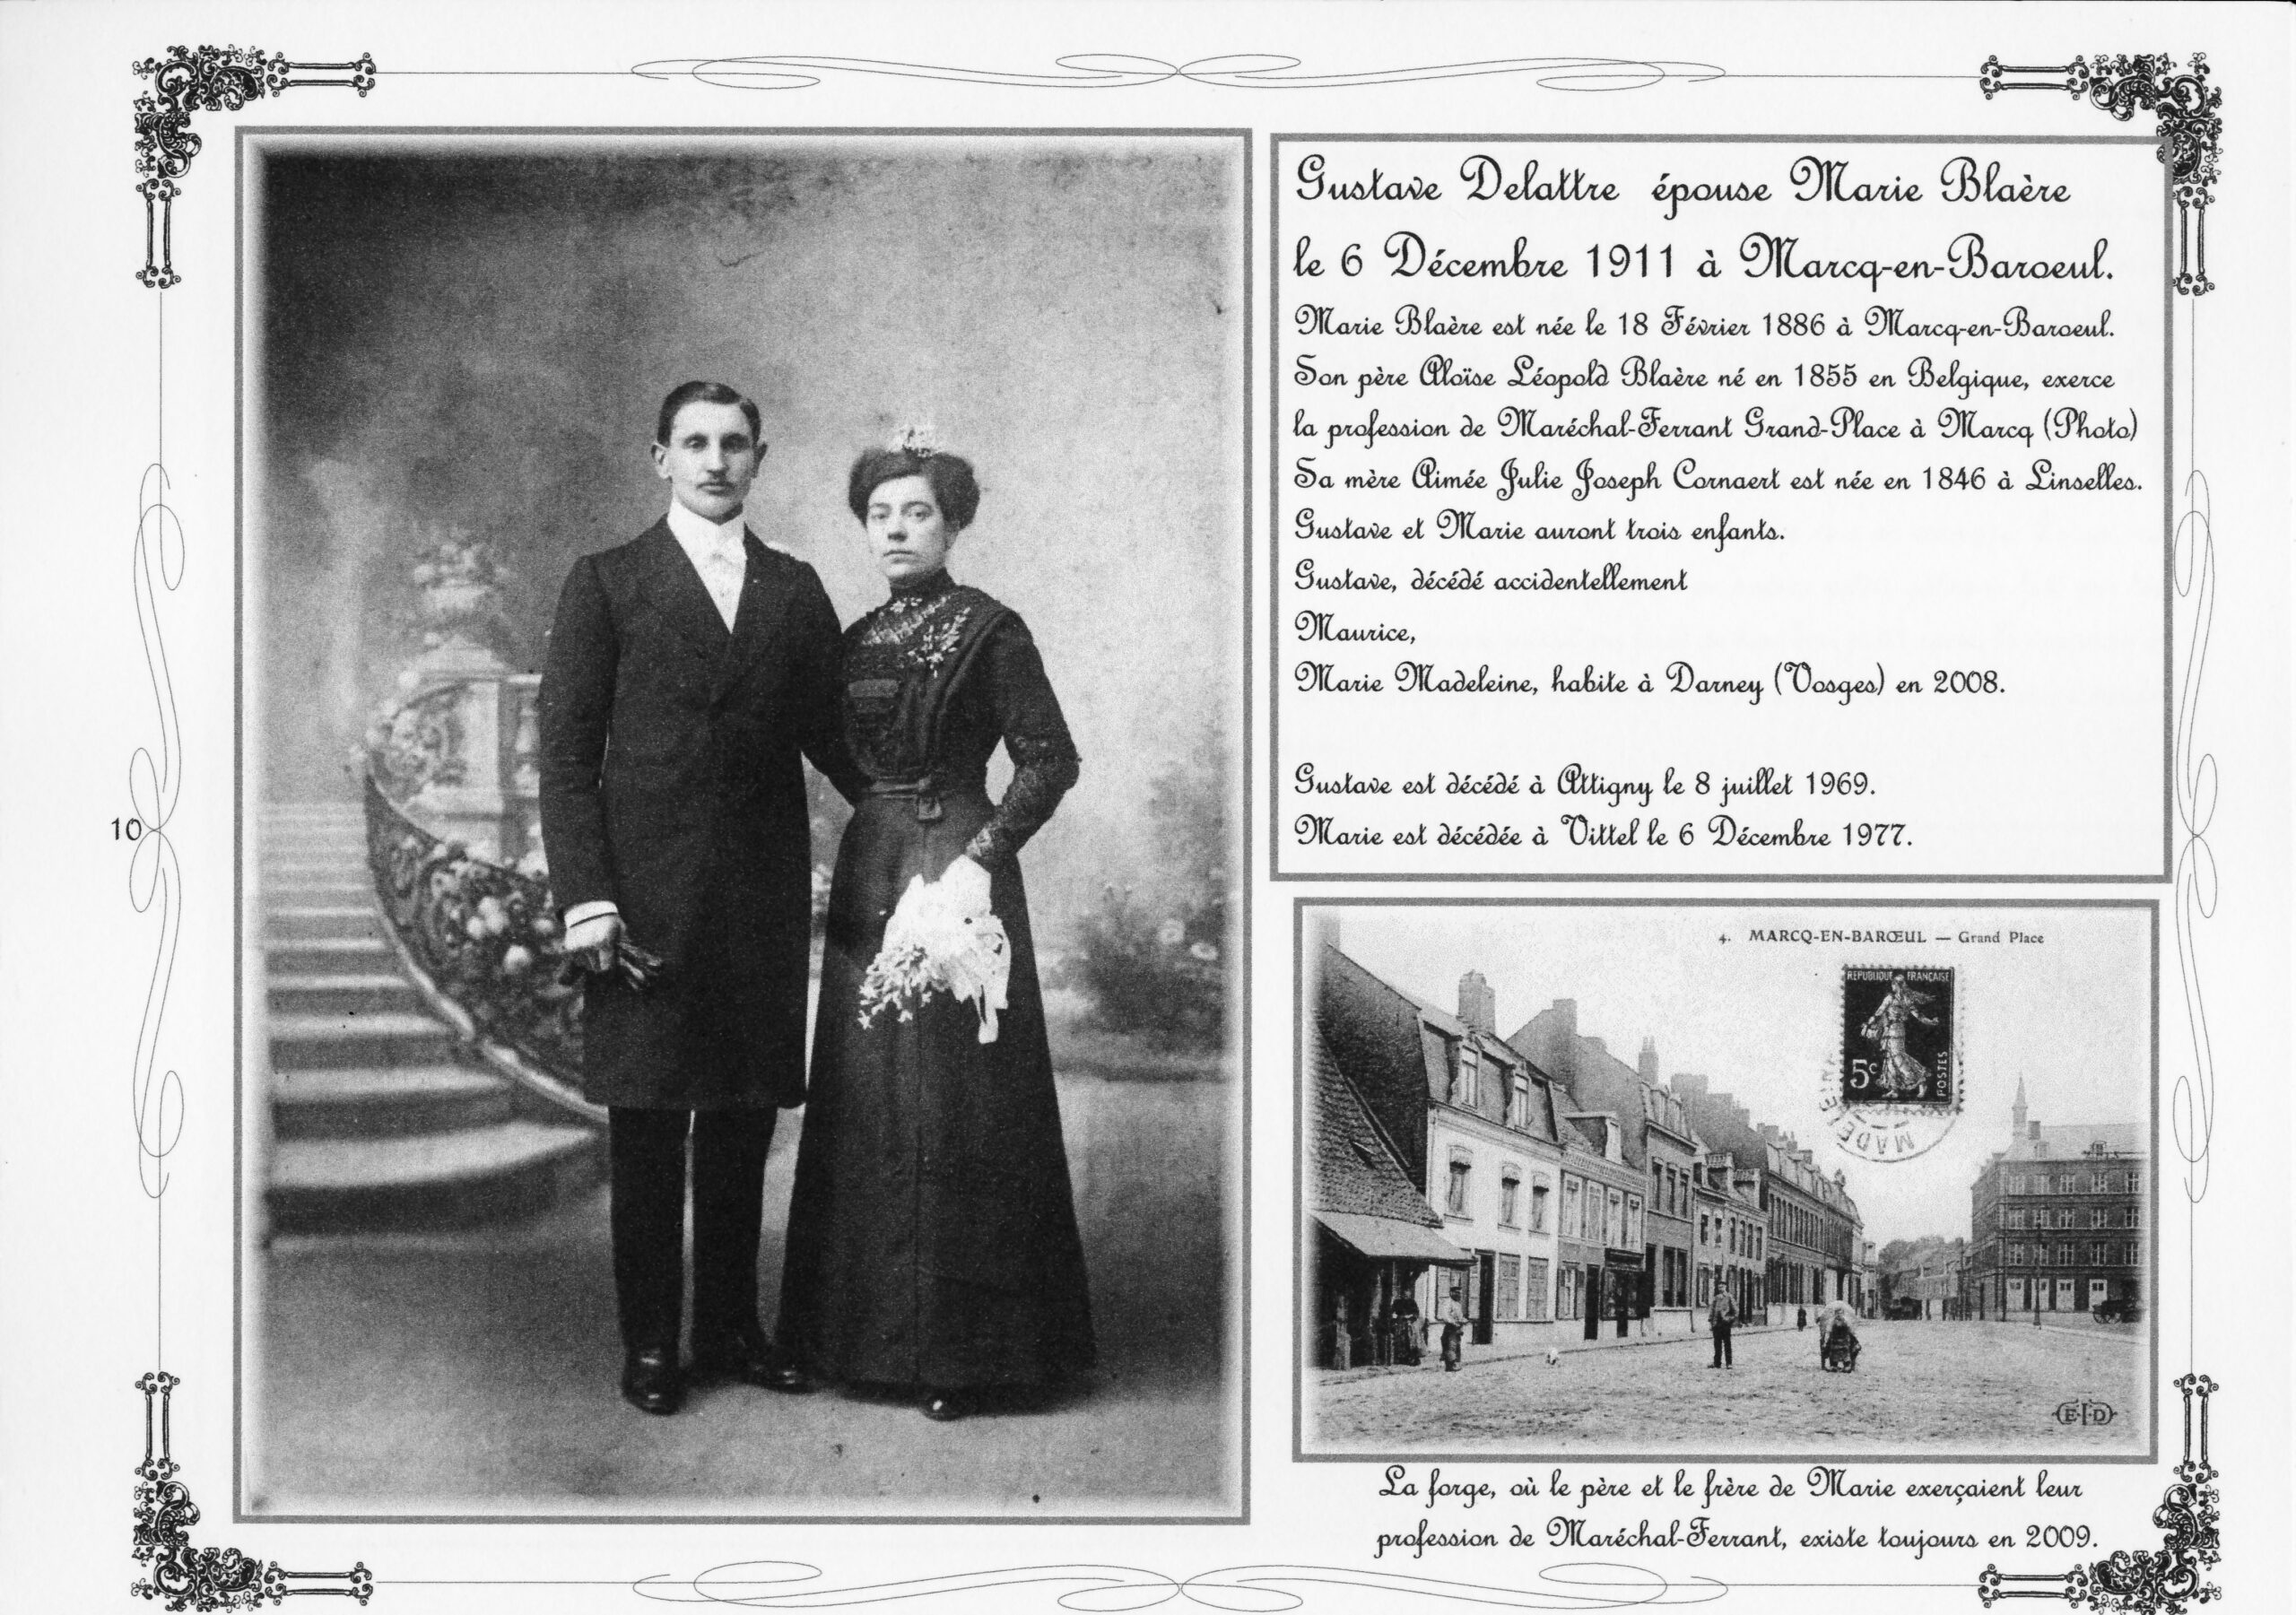 Gustave Delattre épouse Marie Blaère
le 6 Décembre 1911 à Marcq-en-Baroeul.
Marie Blaère est née le 18 Février 1886 à Marcq-en-Baroeul.
Son père Aloïse Léopold Blaère né en 1855 en Belgique, exerce
la profession de Maréchal-Ferrant Grand-Place à Marcq (Photo)
Sa mère Aimée Julie Joseph Cornaert est née en 1846 à Linselles.
Gustave et Marie auront trois enfants.
Gustave, décédé accidentellement
Maurice,
Marie Madeleine, habite à Darney (Vosges) en 2008.
Gustave est décédé à Attigny le 8 juillet 1969.
Marie est décédée à Vittel le 6 Décembre 1977.
10
4. MARCQ-EN-BARŒUL — Grand Place
REPUBLIQUE FRANÇAISE
5c
POSTES
E.L.D
La forge, où le père et le frère de Marie exerçaient leur
profession de Maréchal-Ferrant, existe toujours en 2009.